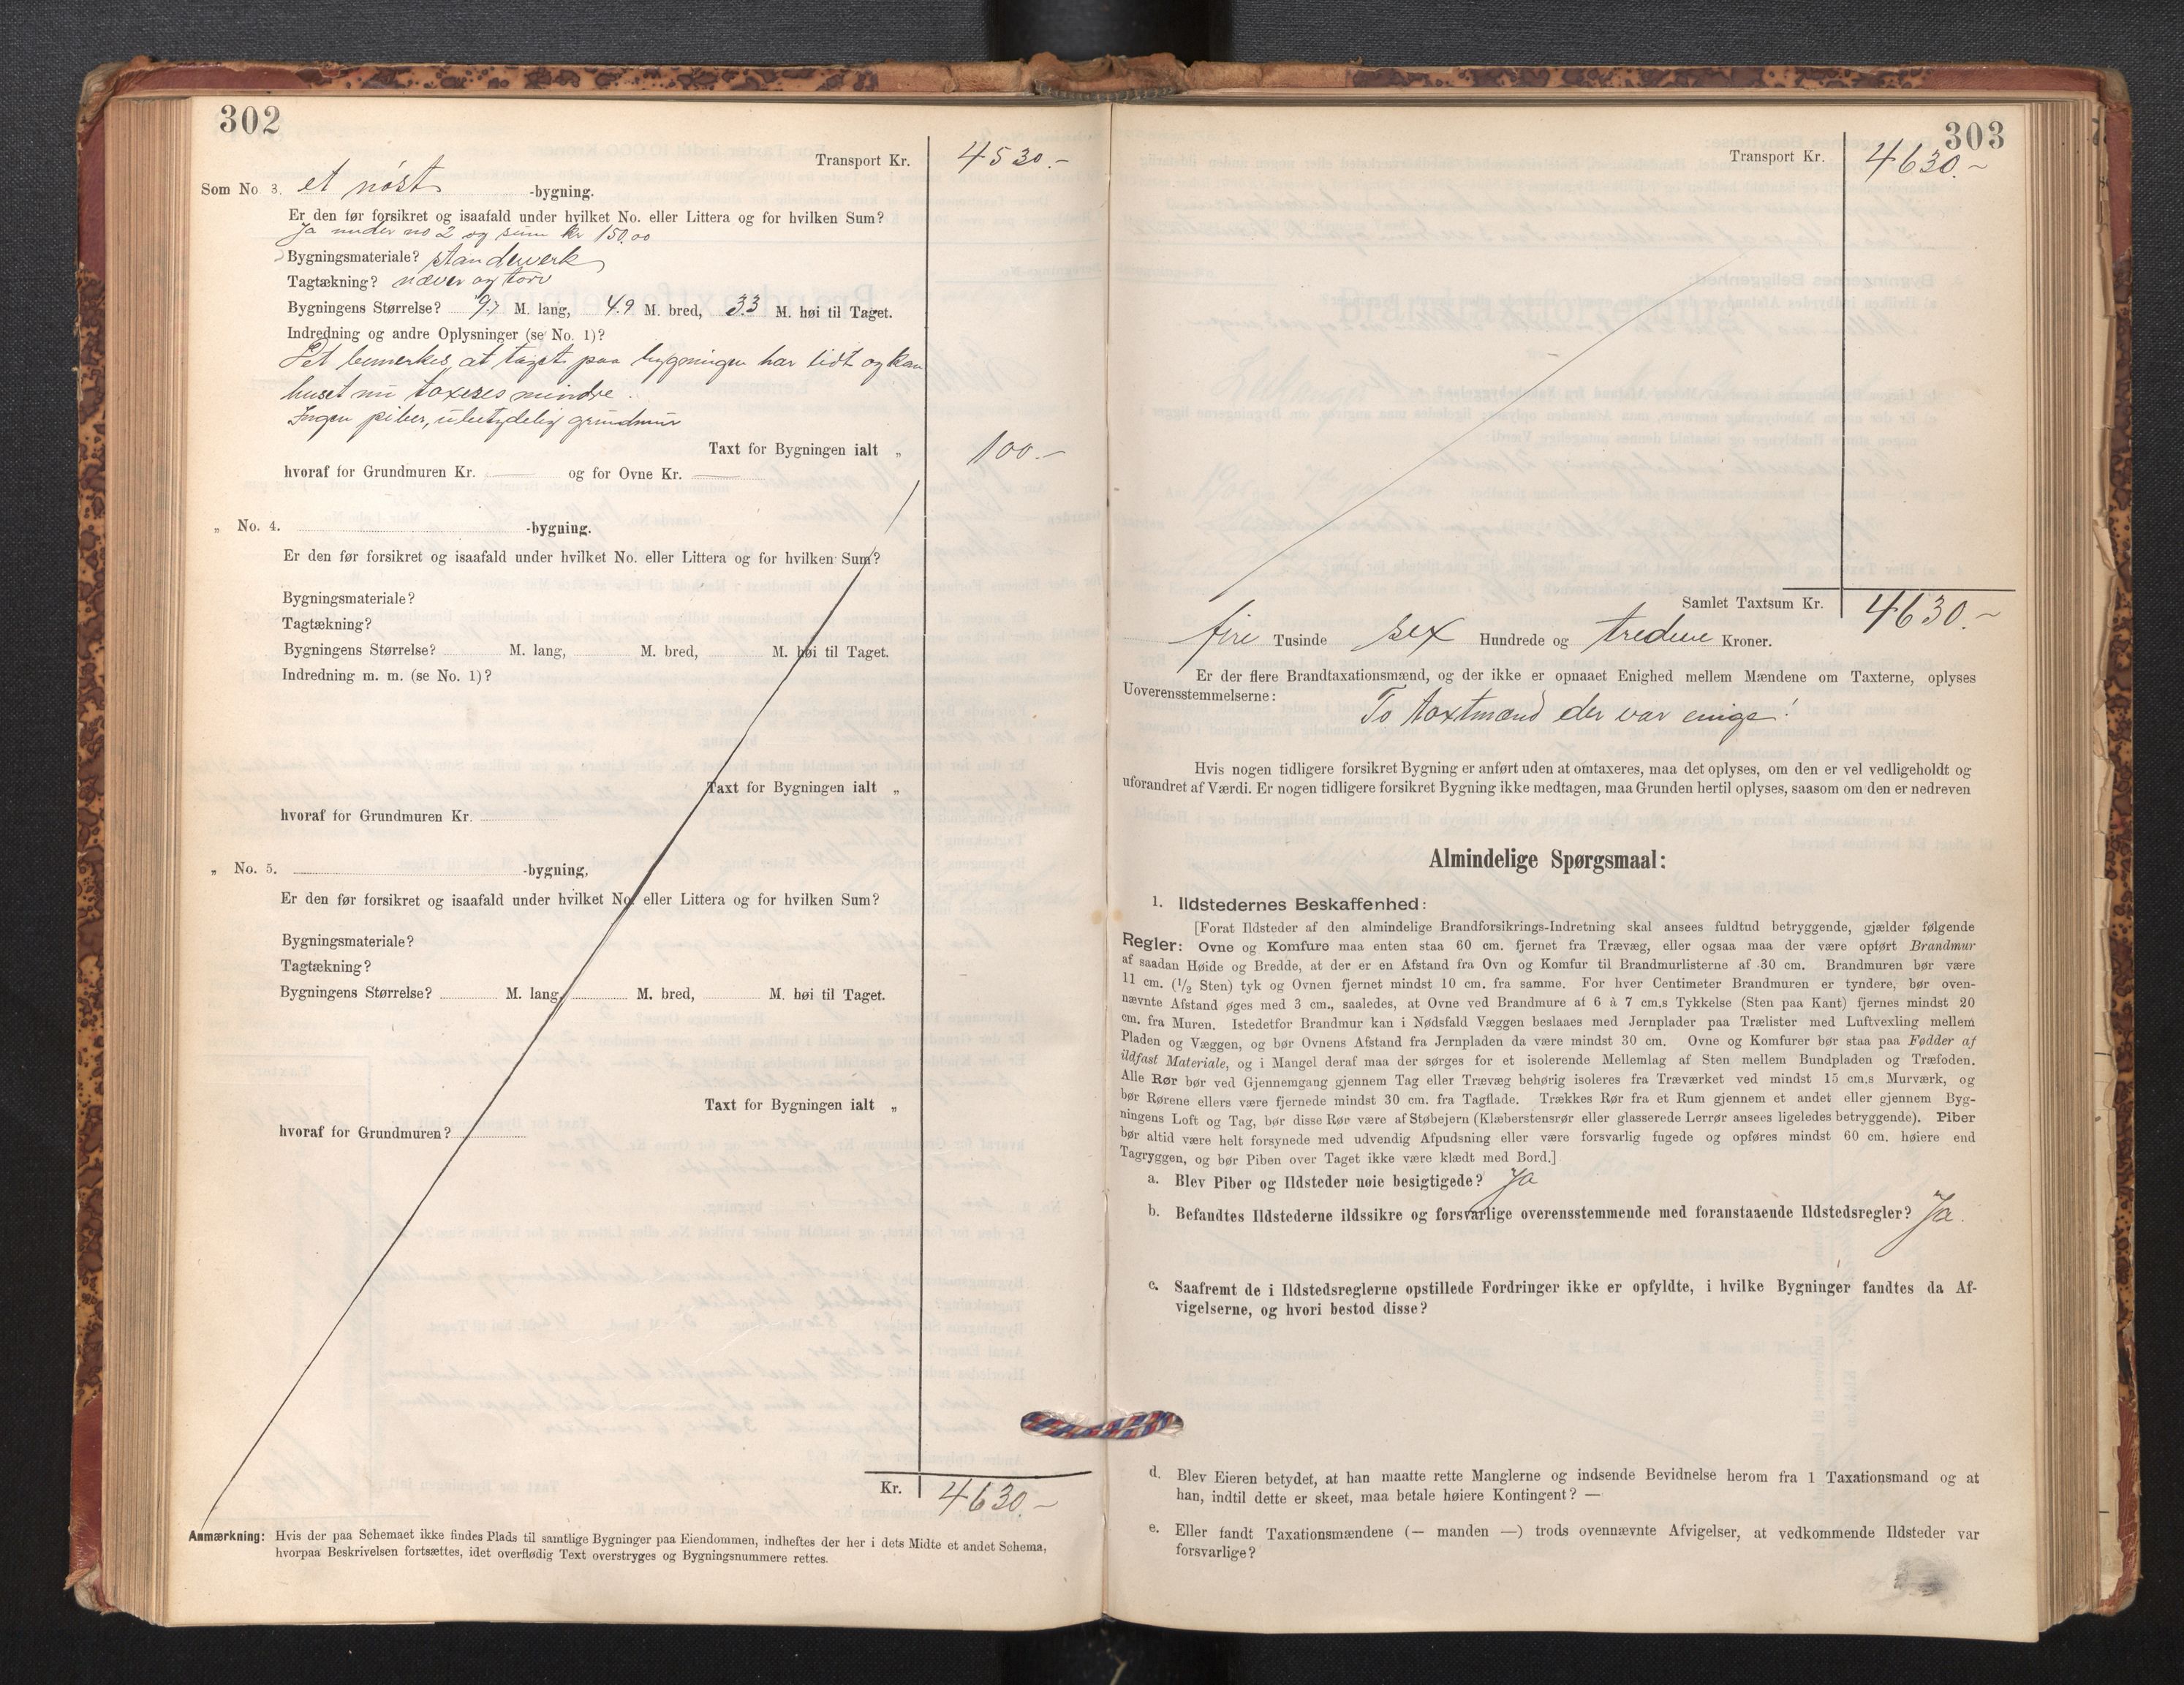 302
Transport Kr. 4530.-
Som No 3. et nöst -bygning.
Er den før forsikret og isaafald under hvilket No. eller Littera og for hvilken Sum?
Ja under no 2 og sum kr 150.00
Bygningsmateriale? standverk
Tagtækning? næver og torv
Bygningens Størrelse? 9.7 M. lang, 4.9 M. bred, 3.3 M. høi til Taget.
Indredning og andre Oplysninger (se No. 1)?
Det bemerkes, at taget paa bygningen har lidt og kan
huset nu taxeres mindre.
Ingen piber, ubetydelig grundmur
Taxt for Bygningen ialt „ 100.-
hvoraf for Grundmuren Kr. — og for Ovne Kr. —
„ No. 4. -bygning.
Er den før forsikret og isaafald under hvilket No. eller Littera og for hvilken Sum?
Bygningsmateriale?
Tagtækning?
Bygningens Størrelse? M. lang, M. bred, M. høi til Taget.
Indredning m. m. (se No. 1)?
Taxt for Bygningen ialt „
hvoraf for Grundmuren Kr.
„ No. 5. -bygning,
Er den før forsikret og isaafald under hvilket No. eller Littera og for hvilken Sum?
Bygningsmateriale?
Tagtækning?
Bygningens Størrelse? M. lang, M. bred, M. høi til Taget.
Taxt for Bygningen ialt „
hvoraf for Grundmuren?
Kr. 4630-
Anmærkning: Hvis der paa Schemaet ikke findes Plads til samtlige Bygninger paa Eiendommen, indheftes der her i dets Midte et andet Schema,
hvorpaa Beskrivelsen fortsættes, idet overflødig Text overstryges og Bygningsnummere rettes.
303
Transport Kr. 4630.-
Samlet Taxtsum Kr. 4630.-
fire Tusinde sex Hundrede og tredeve Kroner.
Er der flere Brandtaxationsmænd, og der ikke er opnaaet Enighed mellem Mændene om Taxterne, oplyses
Uoverensstemmelserne:
To taxtmænd der var enige!
Hvis nogen tidligere forsikret Bygning er anført uden at omtaxeres, maa det oplyses, om den er vel vedligeholdt og
uforandret af Værdi. Er nogen tidligere forsikret Bygning ikke medtagen, maa Grunden hertil oplyses, saasom om den er nedreven
Almindelige Spørgsmaal:
1. Ildstedernes Beskaffenhed:
[Forat Ildsteder af den almindelige Brandforsikrings-Indretning skal ansees fuldtud betryggende, gjælder følgende
Regler: Ovne og Komfure maa enten staa 60 cm. fjernet fra Trævæg, eller ogsaa maa der være opført Brandmur
af saadan Høide og Bredde, at der er en Afstand fra Ovn og Komfur til Brandmurlisterne af 30 cm. Brandmuren bør være
11 cm. (1/2 Sten) tyk og Ovnen fjernet mindst 10 cm. fra samme. For hver Centimeter Brandmuren er tyndere, bør oven-
nævnte Afstand øges med 3 cm., saaledes, at Ovne ved Brandmure af 6 à 7 cm.s Tykkelse (Sten paa Kant) fjernes mindst 20
cm. fra Muren. Istedetfor Brandmur kan i Nødsfald Væggen beslaaes med Jernplader paa Trælister med Luftvexling mellem
Pladen og Væggen, og bør Ovnens Afstand fra Jernpladen da være mindst 30 cm. Ovne og Komfurer bør staa paa Fødder af
ildfast Materiale, og i Mangel deraf maa der sørges for et isolerende Mellemlag af Sten mellem Bundpladen og Træfoden.
Alle Rør bør ved Gjennemgang gjennem Tag eller Trævæg behørig isoleres fra Træværket ved mindst 15 cm.s Murværk, og
bør Rørene ellers være fjernede mindst 30 cm. fra Tagflade. Trækkes Rør fra et Rum gjennem et andet eller gjennem Byg-
ningens Loft og Tag, bør disse Rør være af Støbejern (Klæberstensrør eller glasserede Lerrør ansees ligeledes betryggende). Piber
bør altid være helt forsynede med udvendig Afpudsning eller være forsvarlig fugede og opføres mindst 60 cm. høiere end
Tagryggen, og bør Piben over Taget ikke være klædt med Bord.]
a. Blev Piber og Ildsteder nøie besigtigede? Ja
b. Befandtes Ildstederne ildssikre og forsvarlige overensstemmende med foranstaaende Ildstedsregler? Ja.
c. Saafremt de i Ildstedsreglerne opstillede Fordringer ikke er opfyldte, i hvilke Bygninger fandtes da Af-
vigelserne, og hvori bestod disse?
d. Blev Eieren betydet, at han maatte rette Manglerne og indsende Bevidnelse herom fra 1 Taxationsmand og at
han, indtil dette er skeet, maa betale høiere Kontingent? —
e. Eller fandt Taxationsmændene (— manden —) trods ovennævnte Afvigelser, at vedkommende Ildsteder var
forsvarlige?